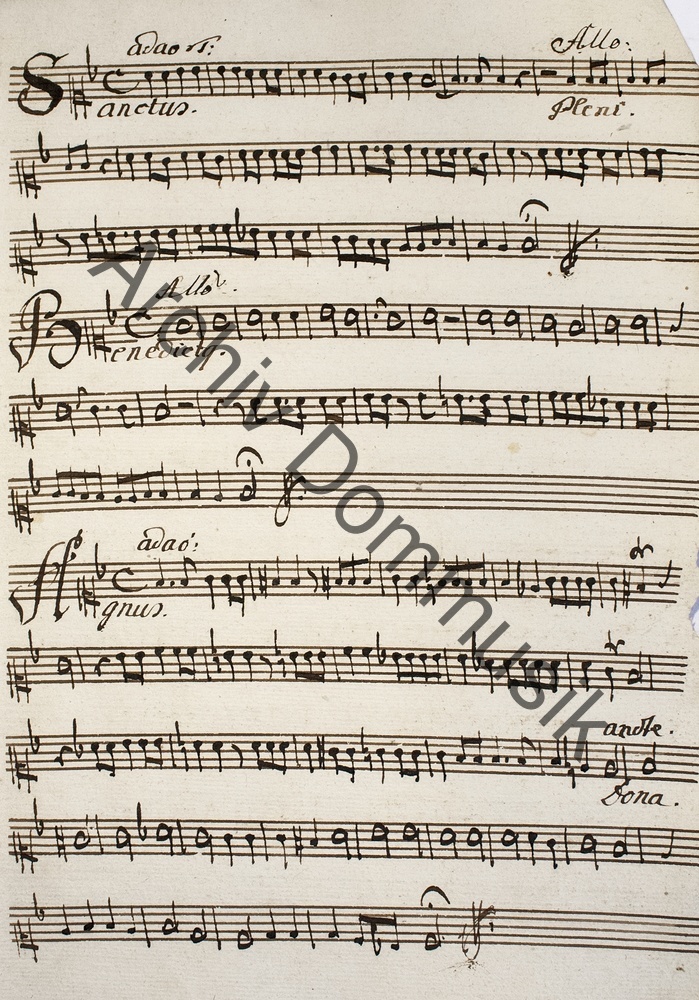 adao
Allo:
Sanctus.
Pleni.
Allo.
Benedictq.
adao:
Agnus.
andte.
Dona.
Archiv Dommusik